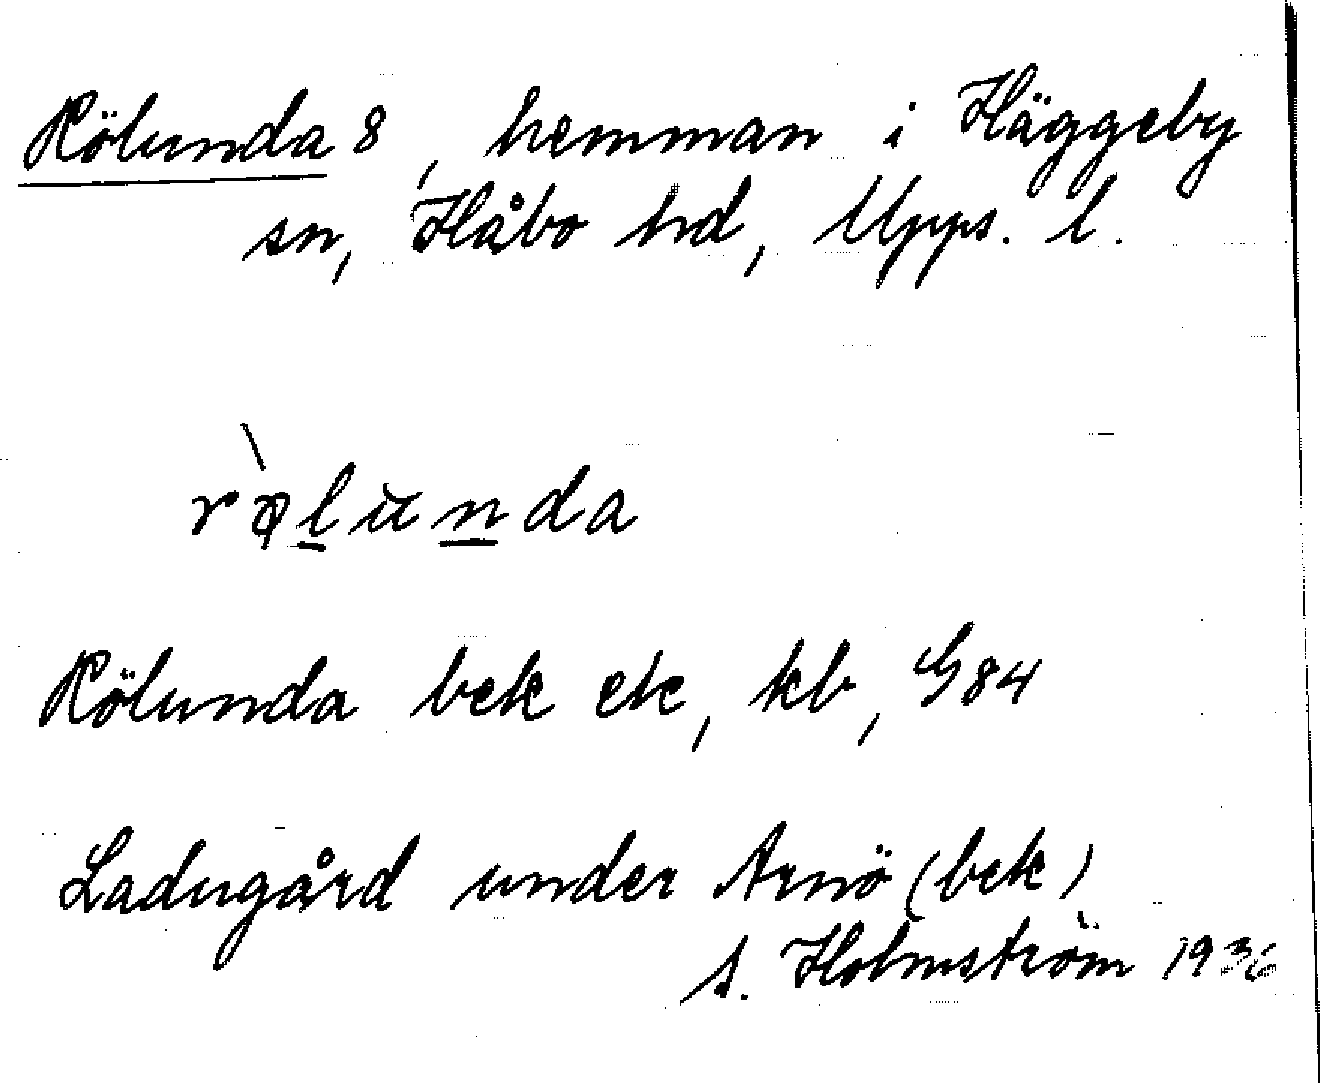 Rölunda 8, hemman i Häggeby
sn, Håbo hd, Upps. l.
Rölunda bek ek, kb, G84
Ladugård under Arnö (bek)
A. Holmström 1936